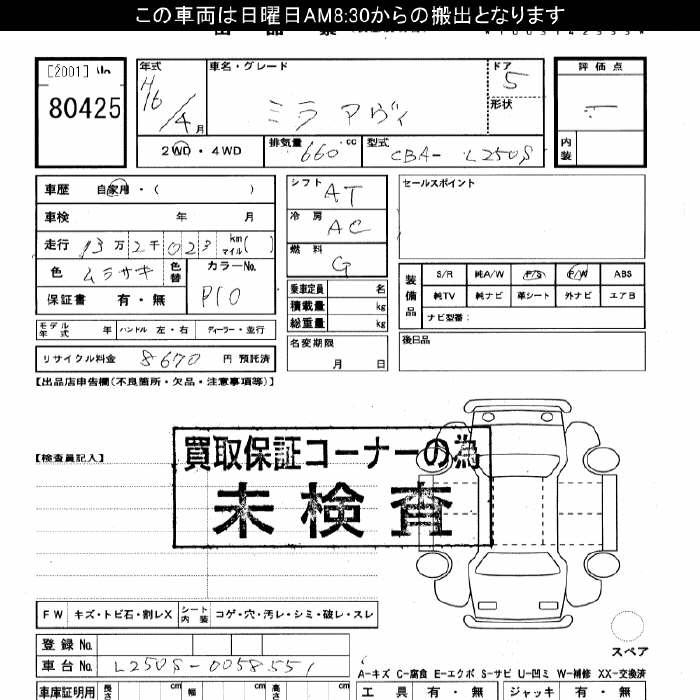 この車両は日曜日AM8:30からの搬出となります
[2001] No
80425
年式 車名・グレード ドア 評価点
H16/4月 ミラ アヴィ 5
形状
2WD・4WD 排気量 660 cc 型式 CBA-L250S 内装
車歴 自家用・( )
車検 年 月
走行 13万2千023 km マイル( )
色 ムラサキ 色替 カラーNo. P10
保証書 有・無
シフト AT
冷房 AC
燃料 G
乗車定員 名
積載量 kg
総重量 kg
名変期限 月 日
セールスポイント
装備品 S/R 純A/W P/S P/W ABS
純TV 純ナビ 革シート 外ナビ エアB
ナビ型番:
後日品
モデル年式 年 ハンドル 左・右 ディーラー・並行
リサイクル料金 8670 円 預託済
【出品店申告欄(不良箇所・欠品・注意事項等)】
【検査員記入】
買取保証コーナーの為
未検査
FW キズ・トビ石・割レX シート内装 コゲ・穴・汚レ・シミ・破レ・スレ
登録No.
車台No. L250S-0058551
スペア
A-キズ C-腐食 E-エクボ S-サビ U-凹ミ W-補修 XX-交換済
車庫証明用 長さ cm 幅 cm 高さ cm 工具 有・無 ジャッキ 有・無